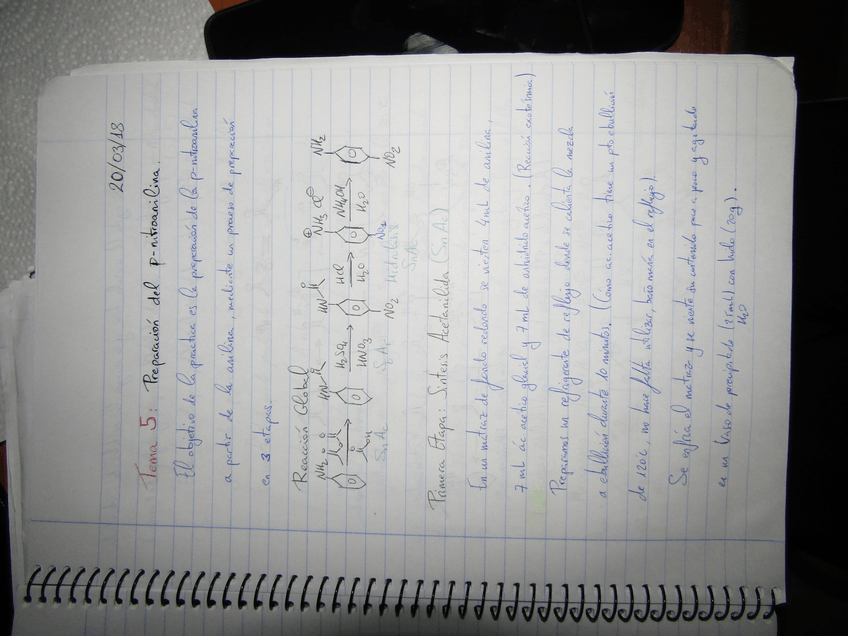 20/03/18
Tema 5: Preparación del p-nitroanilina.
El objetivo de la practica es la preparación de la p-nitroanilina
a partir de la anilina, mediante un proceso de preparación
en 3 etapas.
Reacción Global
NH2 HN HN NH3 Cl NH2
H2SO4 HCl NH4OH
HNO3 H2O H2O
NO2 NO2 NO2
SnAc SEAr Hidrólisis
SnAc
Primera Etapa: Síntesis Acetanilida (SnAc)
En un matraz de fondo redondo se vierten 4mL de anilina,
7 mL ác acético glacial y 7 mL de anhidrido acético. (Reacción exotérmica)
Preparamos un refrigerante de reflujo donde se calienta la mezcla
a ebullición durante 10 minutos. (Como ac. acético tiene un pto ebullición
de 120ºC, no hace falta utilizar, baño maría en el reflujo).
Se enfría el matraz y se vierte su contenido poco a poco y agitando
en un vaso de precipitado (35ml) con hielo (20g).
H2O